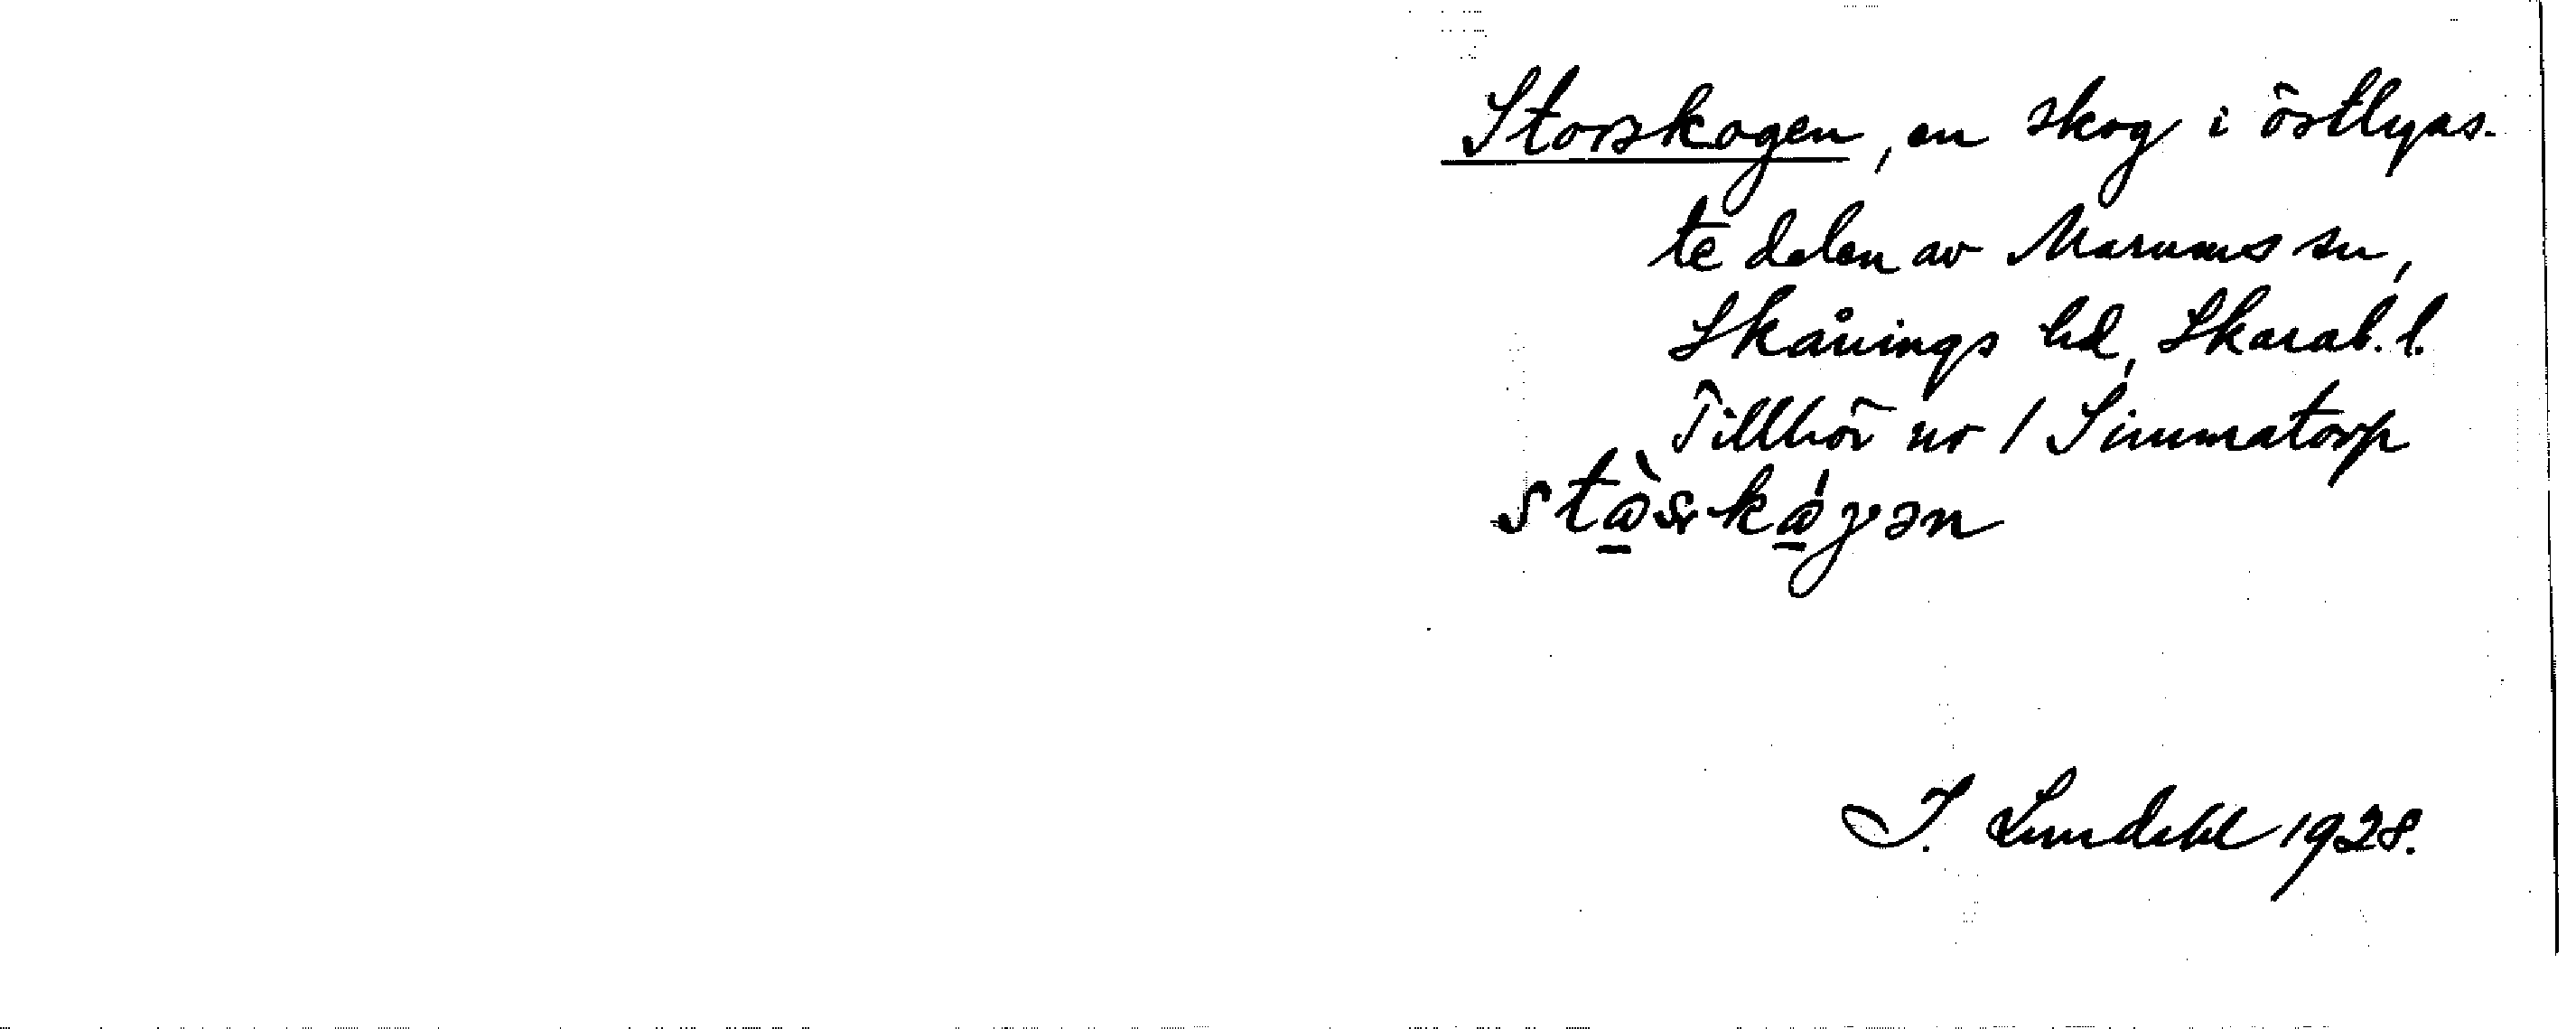 Storskogen, en skog i östlyas-
te delen av Marums sn,
Skånings hd, Skarab. l.
Tillhör nr 1 Simmatorp
I. Lundahl 1928.